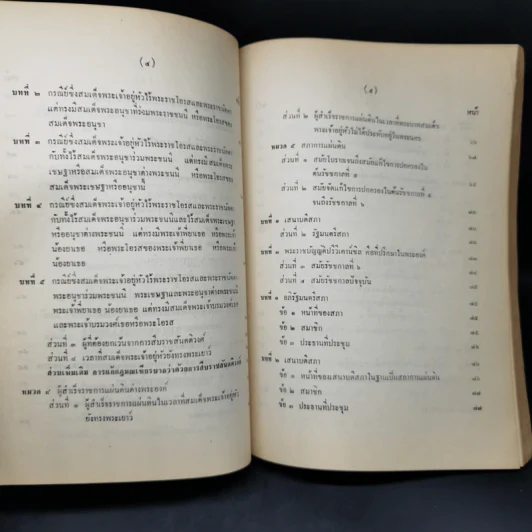 (๔)
บทที่ ๒ กรณีย์ซึ่งสมเด็จพระเจ้าอยู่หัวไร้พระราชโอรสและพระราชนัดดา
แต่ทรงมีสมเด็จพระอนุชาที่ร่วมพระราชชนนี หรือพระโอรสของ
สมเด็จพระอนุชา
บทที่ ๓ กรณีย์ซึ่งสมเด็จพระเจ้าอยู่หัวไร้พระราชโอรสและพระราชนัดดา
กับทั้งไร้สมเด็จพระอนุชาร่วมพระชนนี แต่ทรงมีสมเด็จพระ
เชษฐาหรือสมเด็จพระอนุชาต่างพระชนนี หรือพระโอรส
สมเด็จพระเชษฐาหรืออนุชานี้
บทที่ ๔ กรณีย์ซึ่งสมเด็จพระเจ้าอยู่หัวไร้พระราชโอรสและพระราชนัดดา
กับทั้งไร้สมเด็จพระอนุชาร่วมพระชนนีและไร้สมเด็จพระเชษฐา
หรืออนุชาต่างพระชนนี แต่ทรงมีพระเจ้าพี่ยาเธอ หรือพระเจ้า
น้องยาเธอ หรือพระโอรสของพระเจ้าพี่ยาเธอ หรือพระเจ้า
น้องยาเธอ
บทที่ ๕ กรณีย์ซึ่งสมเด็จพระเจ้าอยู่หัวไร้พระราชโอรสและพระราชนัดดา
พระอนุชาร่วมพระชนนี พระเชษฐาและพระอนุชาต่างพระชนนี
พระเจ้าพี่ยาเธอ น้องยาเธอ แต่ทรงมีพระเจ้าบรมวงศ์เธอ
และพระเจ้าบรมวงศ์เธอหรือพระโอรส
ส่วนที่ ๓ ผู้ที่ต้องยกเว้นจากการสืบราชสันตติวงศ์
ส่วนที่ ๔ เวลาที่สมเด็จพระเจ้าอยู่หัวยังทรงพระเยาว์
ส่วนเพิ่มเติม การแก้กฎมณเฑียรบาลว่าด้วยการสืบราชสันตติวงศ์
หมวด ๔ ผู้สำเร็จราชการแผ่นดินต่างพระองค์
ส่วนที่ ๑ ผู้สำเร็จราชการแผ่นดินในเวลาที่สมเด็จพระเจ้าอยู่หัว
ยังทรงพระเยาว์
(๕)
หน้า
ส่วนที่ ๒ ผู้สำเร็จราชการแผ่นดินในเวลาที่พระบาทสมเด็จ
พระเจ้าอยู่หัวไม่ได้ประทับอยู่ในพระนคร
หมวด ๕ สภาการแผ่นดิน
ส่วนที่ ๑ สมัยโบราณจนถึงสมัยแก้ไขการปกครองใน
ต้นรัชกาลที่ ๕
ส่วนที่ ๒ สมัยแก้ไขการปกครองในต้นรัชกาลที่ ๕
จนถึงรัชกาลที่ ๖
บทที่ ๑ เสนาบดีสภา
ส่วนที่ ๒ รัฐมนตรีสภา
บทที่ ๓ พระราชบัญญัติปรีวีเคาน์ซิล คือที่ปรึกษาในพระองค์
ส่วนที่ ๓ สมัยรัชกาลที่ ๖
ส่วนที่ ๔ สมัยรัชกาลปัจจุบัน
บทที่ ๑ อภิรัฐมนตรีสภา
ข้อ ๑ หน้าที่ของสภา
ข้อ ๒ สมาชิก
ข้อ ๓ ประธานที่ประชุม
บทที่ ๒ เสนาบดีสภา
ข้อ ๑ หน้าที่ของเสนาบดีสภาในฐานเป็นสภาการแผ่นดิน
ข้อ ๒ สมาชิก
ข้อ ๓ ประธานที่ประชุม